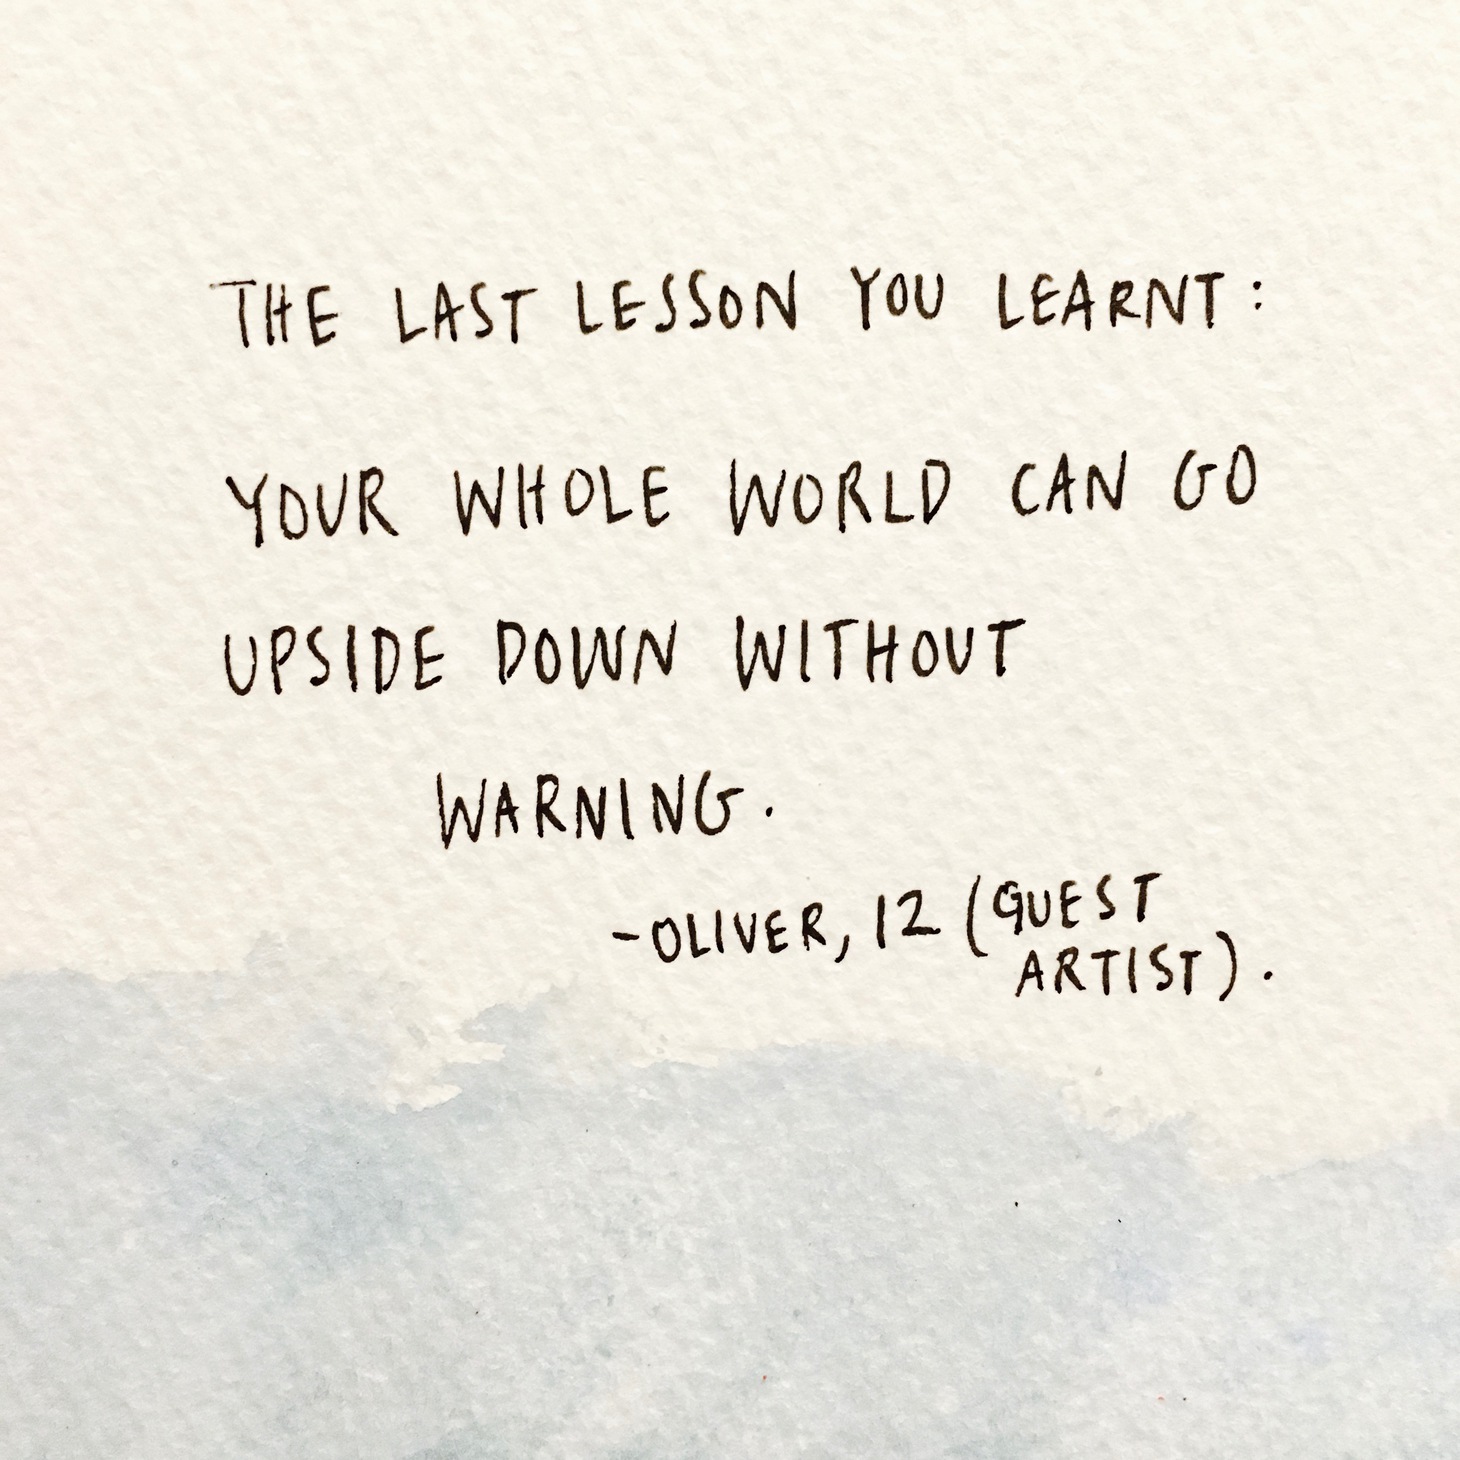 THE LAST LESSON YOU LEARNT:
YOUR WHOLE WORLD CAN GO
UPSIDE DOWN WITHOUT
WARNING.
-OLIVER, 12 (GUEST
ARTIST).